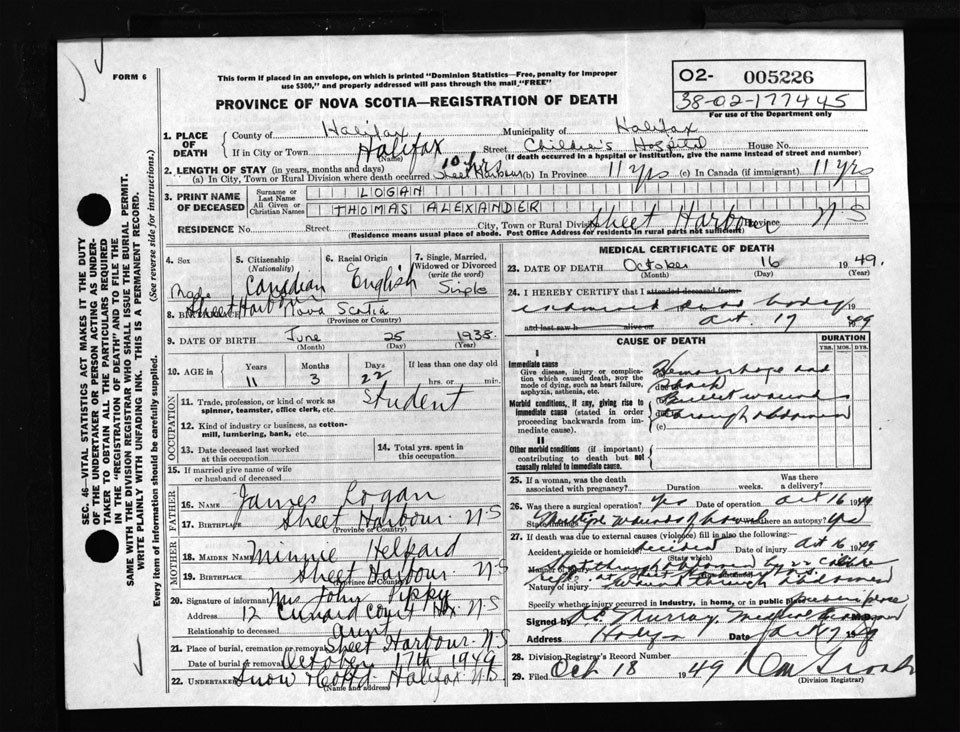 FORM 6
This form if placed in an envelope, on which is printed "Dominion Statistics—Free, penalty for improper
use $300," and properly addressed will pass through the mail "FREE"
O2- 005226
38-02-177445
For use of the Department only
PROVINCE OF NOVA SCOTIA—REGISTRATION OF DEATH
1. PLACE OF DEATH
County of Halifax Municipality of Halifax
If in City or Town Halifax Street Children's Hospital House No.
(Name) (If death occurred in a hspital or institution, give the name instead of street and number)
2. LENGTH OF STAY (in years, months and days)
(a) In City, Town or Rural Division where death occurred 10 hrs Sheet Harbour (b) In Province 11 yrs (c) In Canada (if immigrant) 11 yrs
3. PRINT NAME OF DECEASED
Surname or Last Name LOGAN
All Given or Christian Names THOMAS ALEXANDER
RESIDENCE No. Street City, Town or Rural Division Sheet Harbour Province N S
(Residence means usual place of abode. Post Office Address for residents in rural parts not sufficient)
4. Sex Male
5. Citizenship (Nationality) Canadian
6. Racial Origin English
7. Single, Married, Widowed or Divorced (write the word) Single
8. BIRTHPLACE Sheet Harbour Nova Scotia
(Province or Country)
9. DATE OF BIRTH June 25 1938
(Month) (Day) (Year)
10. AGE in Years Months Days If less than one day old
11 3 22 hrs. or min.
OCCUPATION
11. Trade, profession, or kind of work as spinner, teamster, office clerk, etc. Student
12. Kind of industry or business, as cotton-mill, lumbering, bank, etc.
13. Date deceased last worked at this occupation
14. Total yrs. spent in this occupation
15. If married give name of wife or husband of deceased
FATHER
16. Name James Logan
17. Birthplace Sheet Harbour. N.S
(Province or Country)
MOTHER
18. Maiden Name Minnie
19. Birthplace Sheet Harbour. N S
(Province or Country)
20. Signature of informant Mrs John Pippy
Address 12 Cunard Court Hx N.S
Relationship to deceased aunt
21. Place of burial, cremation or removal Sheet Harbour. N.S
Date of burial or removal October 17th 1949
22. UNDERTAKER Snow & Co Ltd. Halifax N.S.
(Name and address)
MEDICAL CERTIFICATE OF DEATH
23. DATE OF DEATH October 16 1949.
(Month) (Day) (Year)
24. I HEREBY CERTIFY that I attended deceased from
examined dead body 19
and last saw h alive on Oct. 17 1949
CAUSE OF DEATH
DURATION
YRS. MOS. DYS.
I
Immediate cause
Give disease, injury or complication which caused death, not the mode of dying, such as heart failure, asphyxia, asthenia, etc.
(a) Hemorrhage and
shock
Morbid conditions, if any, giving rise to immediate cause (stated in order proceeding backwards from immediate cause).
(b) Bullet wounds
(c) through abdomen
II
Other morbid conditions (if important) contributing to death but not causally related to immediate cause.
25. If a woman, was the death associated with pregnancy? Duration weeks. Was there a delivery?
26. Was there a surgical operation? Yes Date of operation Oct 16 1949
State findings Multiple wounds of bowel Was there an autopsy? Yes
27. If death was due to external causes (violence) fill in also the following:
Accident, suicide or homicide? Date of injury Oct 16 1949
Manner of injury Shot through abdomen by 22 calibre
Nature of injury wound through abdomen
Specify whether injury occurred in industry, in home, or in public place
Signed by Murray, Medical Examiner
Address Date Oct 17 1949
28. Division Registrar's Record Number
29. Filed Oct 18 1949
(Division Registrar)
SEC. 46—VITAL STATISTICS ACT MAKES IT THE DUTY
OF THE UNDERTAKER OR PERSON ACTING AS UNDER-
TAKER TO OBTAIN ALL THE PARTICULARS REQUIRED
IN THE "REGISTRATION OF DEATH" AND TO FILE THE
SAME WITH THE DIVISION REGISTRAR WHO SHALL ISSUE THE BURIAL PERMIT.
WRITE PLAINLY WITH UNFADING INK. THIS IS A PERMANENT RECORD.
Every item of information should be carefully supplied. (See reverse side for instructions.)